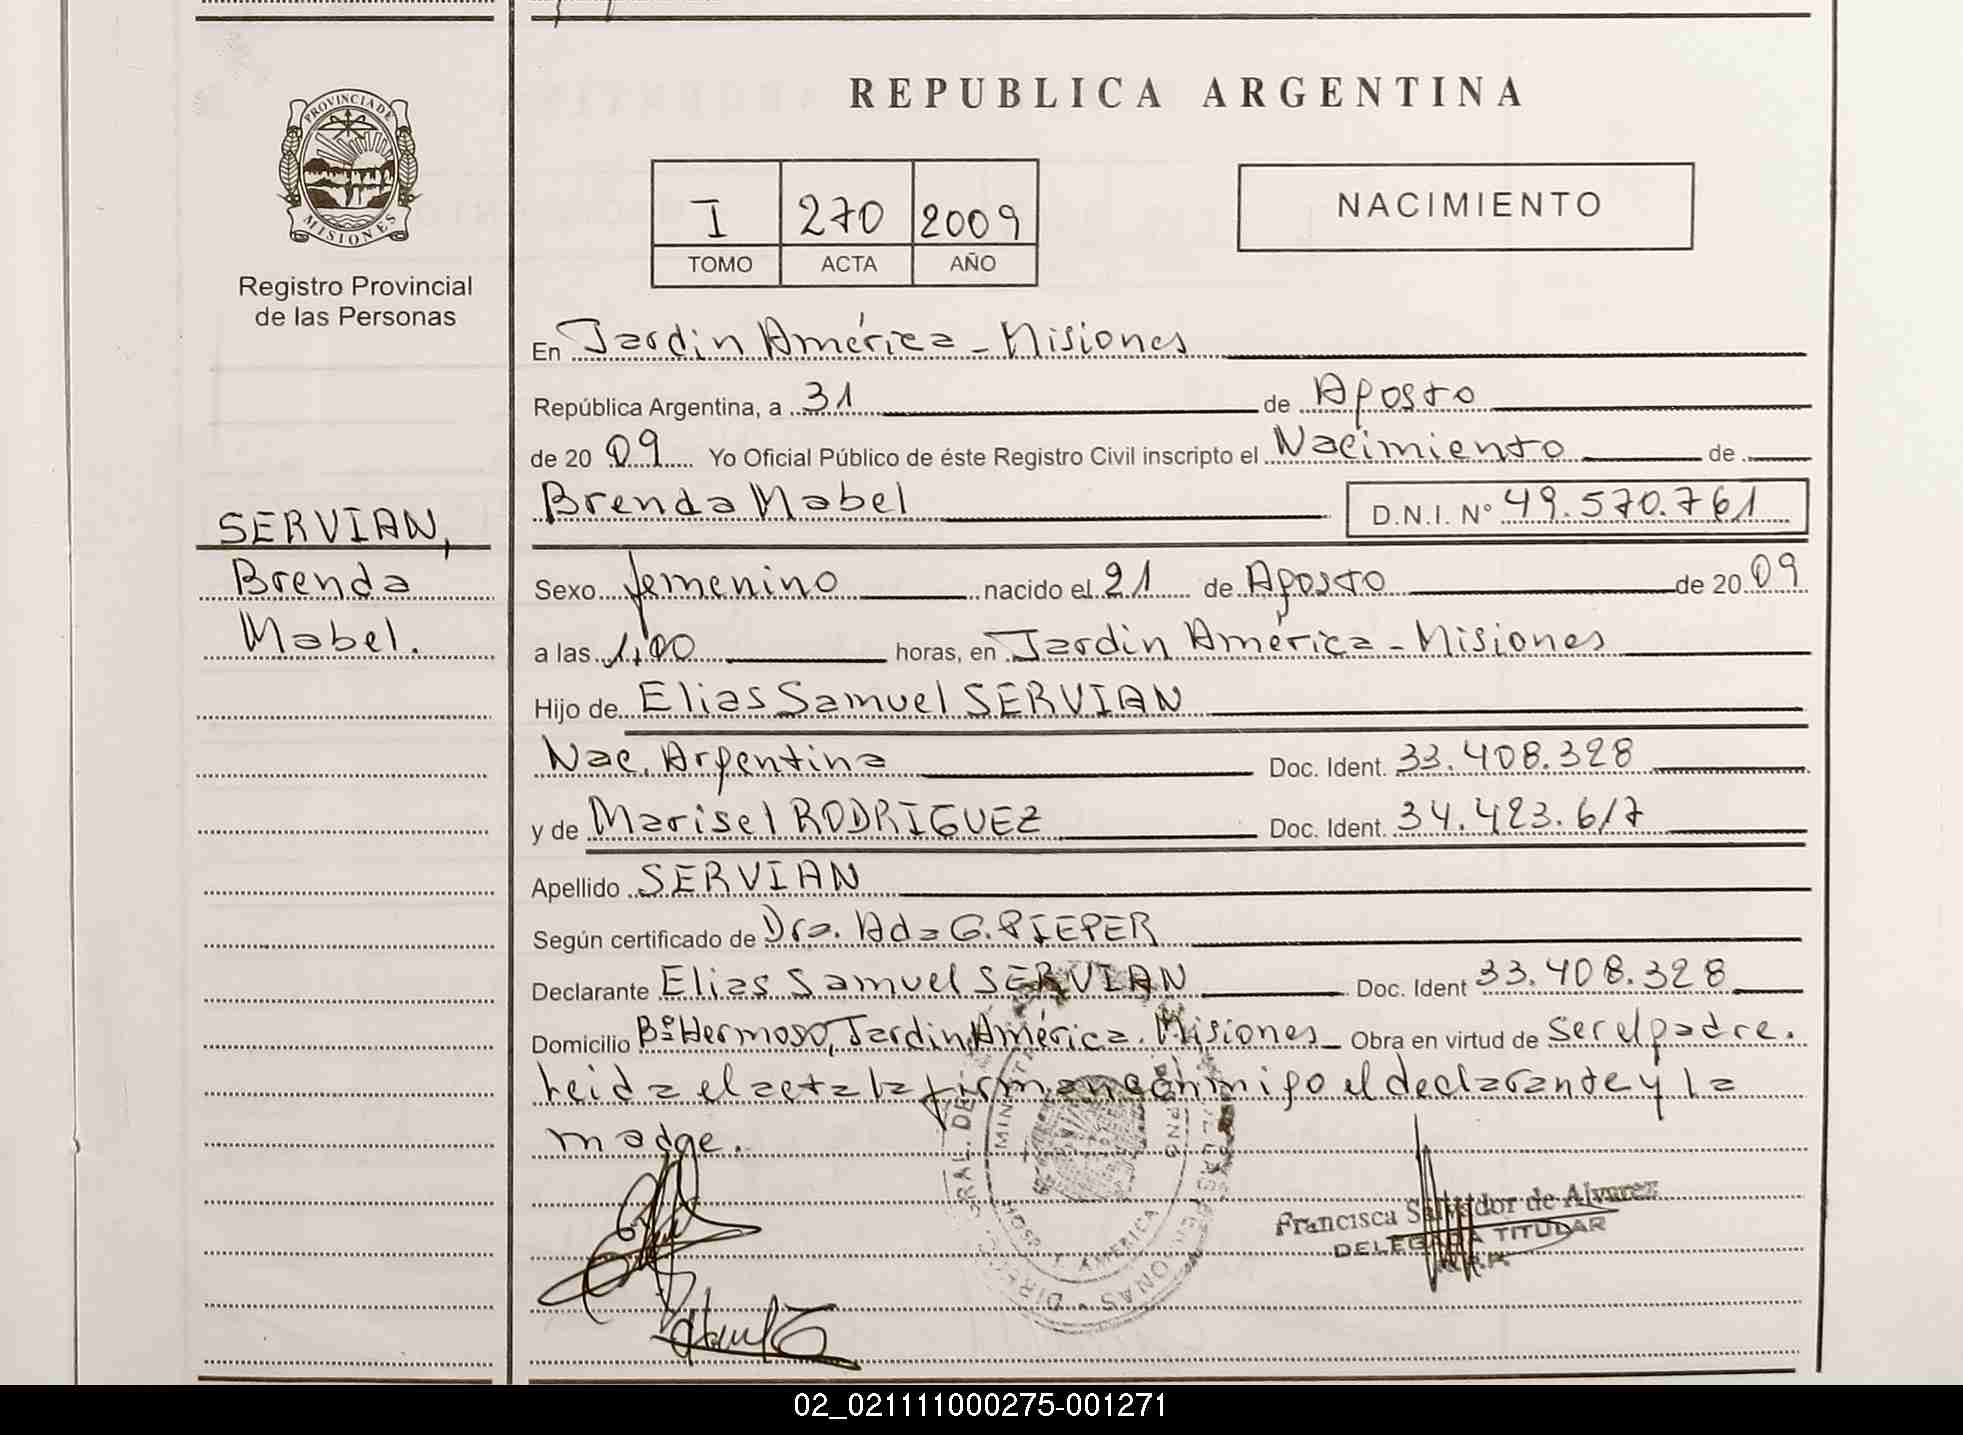 REPUBLICA ARGENTINA
PROVINCIA DE
MISIONES
Registro Provincial
de las Personas
I 270 2009
TOMO ACTA AÑO
NACIMIENTO
En Jardin América - Misiones
República Argentina, a 31 de Agosto
de 20 09 Yo Oficial Público de éste Registro Civil inscripto el Nacimiento de
Brenda Mabel D.N.I. N° 49.570.761
SERVIAN,
Brenda
Mabel.
Sexo femenino nacido el 21 de Agosto de 20 09
a las 1,00 horas, en Jardin América - Misiones
Hijo de Elias Samuel SERVIAN
Nac. Argentina Doc. Ident. 33.408.328
y de Marisel RODRIGUEZ Doc. Ident. 34.423.617
Apellido SERVIAN
Según certificado de Dra. Ada G. PIEPER
Declarante Elias Samuel SERVIAN Doc. Ident 33.408.328
Domicilio B° Hermoso, Jardin América. Misiones Obra en virtud de ser el padre.
Leida el acta la firman conmigo el declarante y la
madre.
Francisca Salvador de Alvarez
DELEGADA TITULAR
02_021111000275-001271